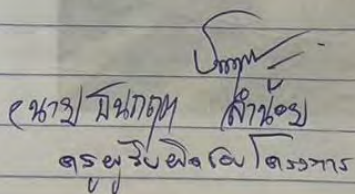 (นาย ธนกฤต ลำน้อย
ครูผู้รับผิดชอบโครงการ